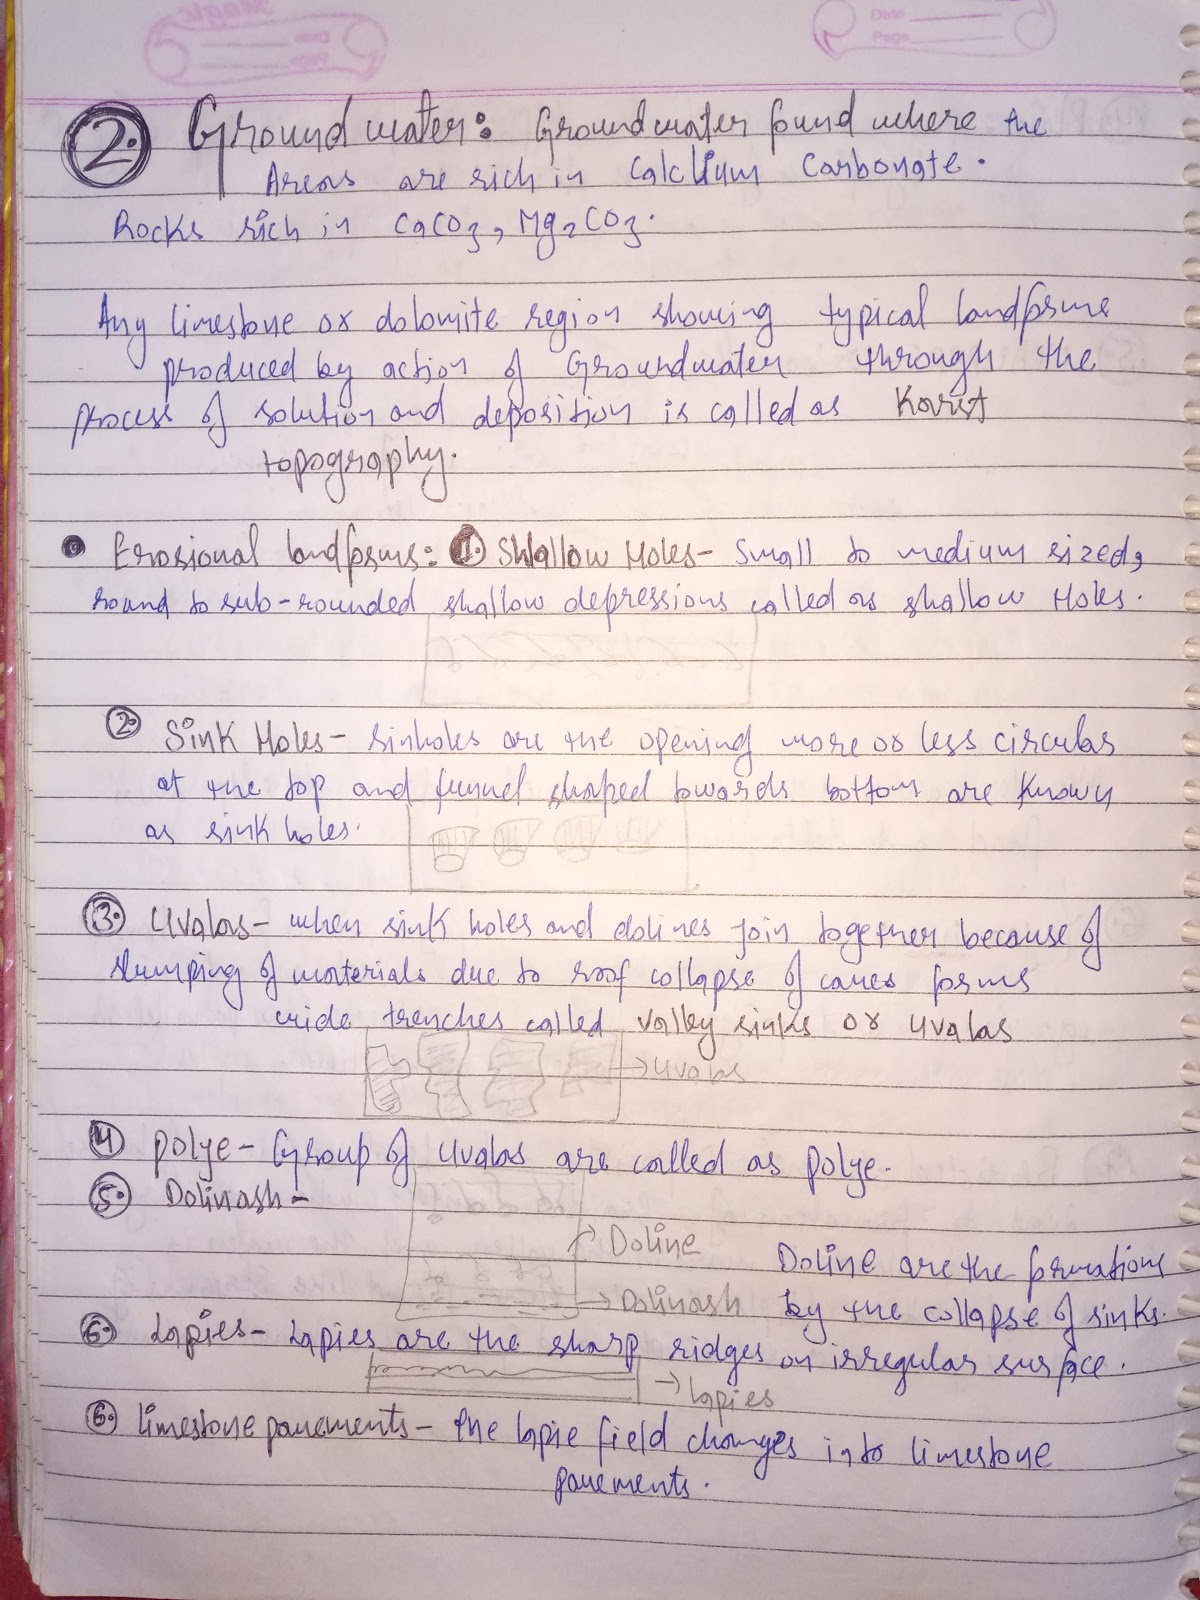 Date
Page
2. Groundwater: Groundwater found where the
Areas are rich in Calcium Carbonate.
Rocks rich in CaCO3, Mg2CO3.
Any limestone or dolomite region showing typical landforms
produced by action of Groundwater through the
process of solution and deposition is called as Karst
topography.
Erosional landforms: 1. Shallow Holes- Small to medium sized,
round to sub-rounded shallow depressions called as shallow Holes.
2. Sink Holes- sinholes are the opening more or less circular
at the top and funnel shaped towards bottom are known
as sink holes.
3. Uvalas- when sink holes and dolines join together because of
slumping of materials due to roof collapse of caves forms
wide trenches called valley sinks or uvalas
→ uvalas
4 Polye- Group of uvalas are called as polye.
5. Dolinash-
→ Doline
Doline are the formations
→ Dolinash by the collapse of sinks.
6. Lapies- Lapies are the sharp ridges on irregular surface.
→ lapies
6. limestone pavements- The lapie field changes into limestone
pavements.